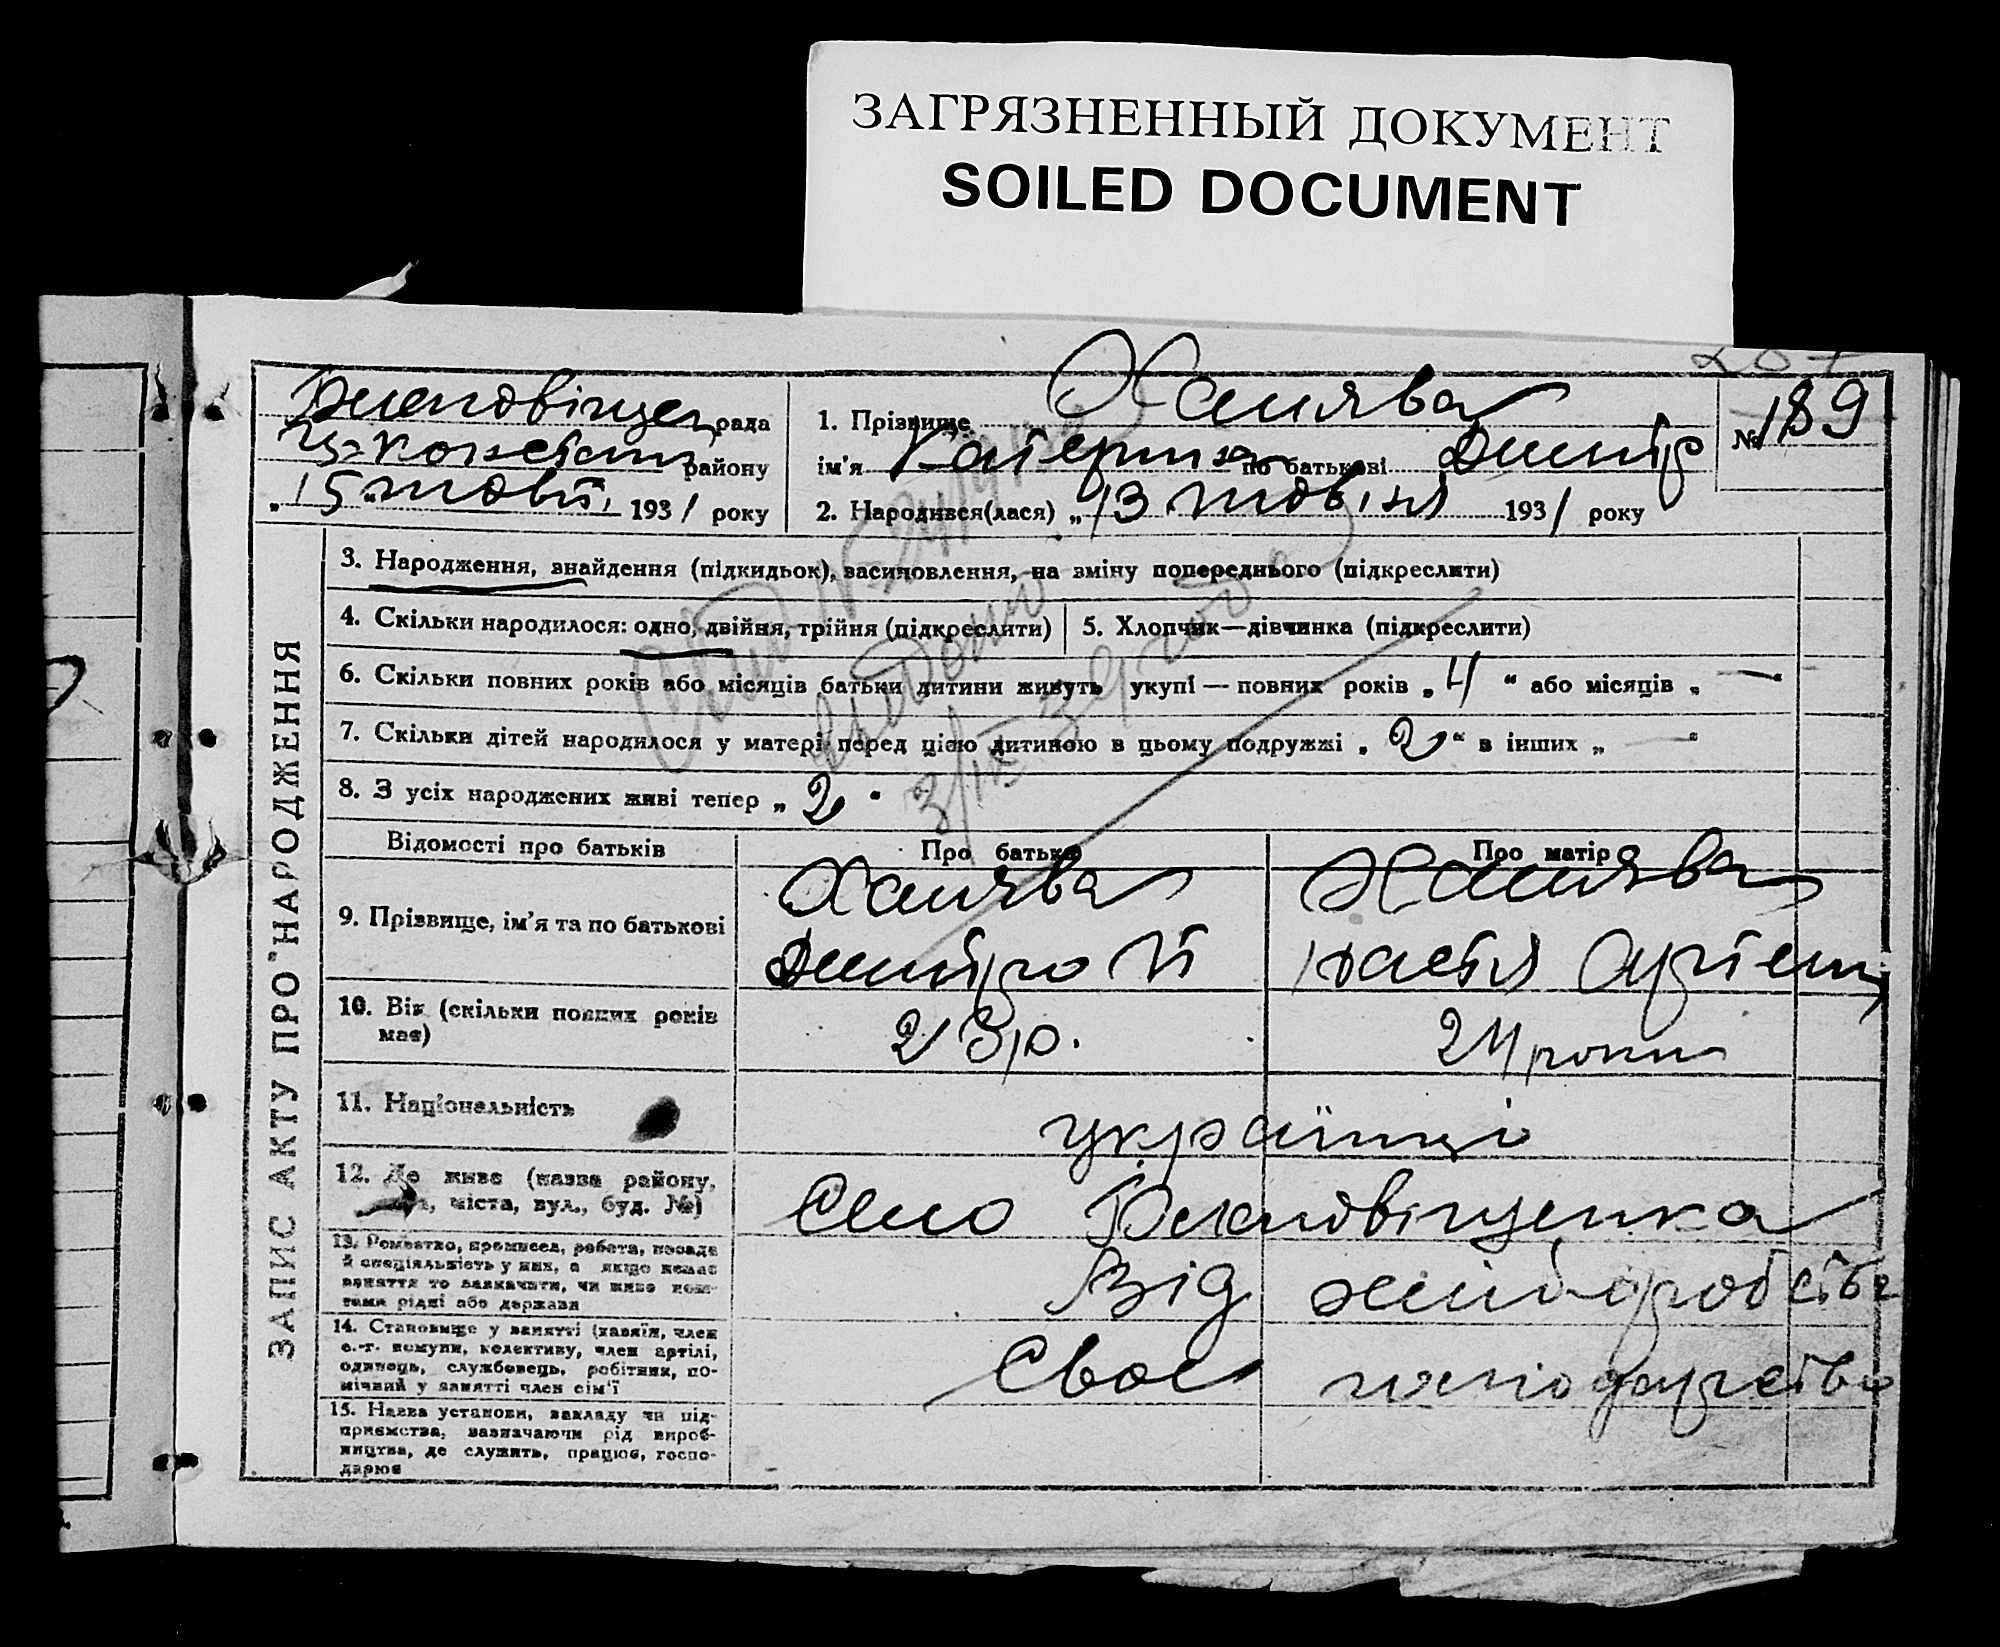 ЗАГРЯЗНЕННЫЙ ДОКУМЕНТ
SOILED DOCUMENT
рада
району
„15" жовт. 1931 року
1. Прізвище Халява
ім'я Катерина по батькові Дмитр
2. Народився(лася) „13 жовтня 1931 року
№ 189
ЗАПИС АКТУ ПРО НАРОДЖЕННЯ
3. Народження, знайдення (підкидьок), засиновлення, на зміну попереднього (підкреслити)
4. Скільки народилося: одно, двійня, трійня (підкреслити)
5. Хлопчик—дівчинка (підкреслити)
6. Скільки повних років або місяців батьки дитини живуть укупі — повних років „4" або місяців „—"
7. Скільки дітей народилося у матері перед цією дитиною в цьому подружжі „2" в інших „—"
8. З усіх народжених живі тепер „2"
Відомості про батьків
Про батька
Про матір
9. Прізвище, ім'я та по батькові
Халява
Дмитро
Халява
Настя Артем
10. Вік (скільки повних років має)
23 р.
24 роки
11. Національність
українці
12. Де живе (назва району, міста, вул., буд. №)
Село
13. Ремество, промисел, робота, посада
й спеціяльність у них, а якщо немає
заняття то зазначити, чи живе кош-
тами рідні або держави
Від хліборобства
14. Становище у занятті (хазяїн, член
с.-г. комуни, колективу, член артілі,
одинець, службовець, робітник, по-
мічний у занятті член сім'ї
Своє господарство
15. Назва установи, закладу чи під-
приємства, зазначаючи рід вироб-
ництва, де служить, працює, госпо-
дарює